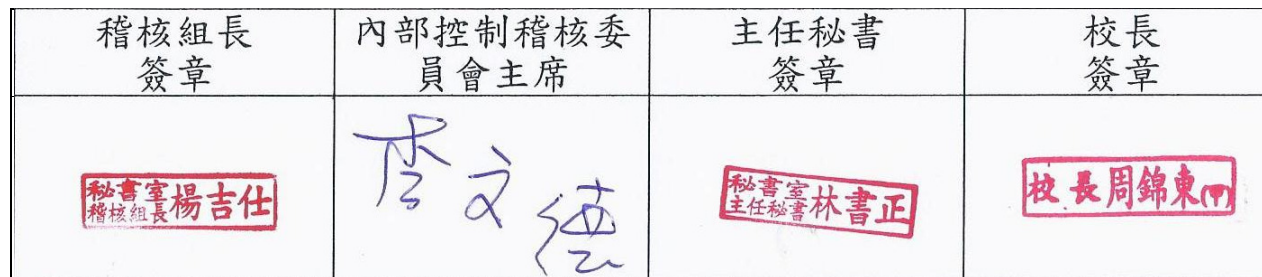 稽核組長
簽章
內部控制稽核委
員會主席
主任秘書
簽章
校長
簽章
秘書室
稽核組長
楊吉仕
李文德
秘書室
主任秘書
林書正
校長周錦東(甲)